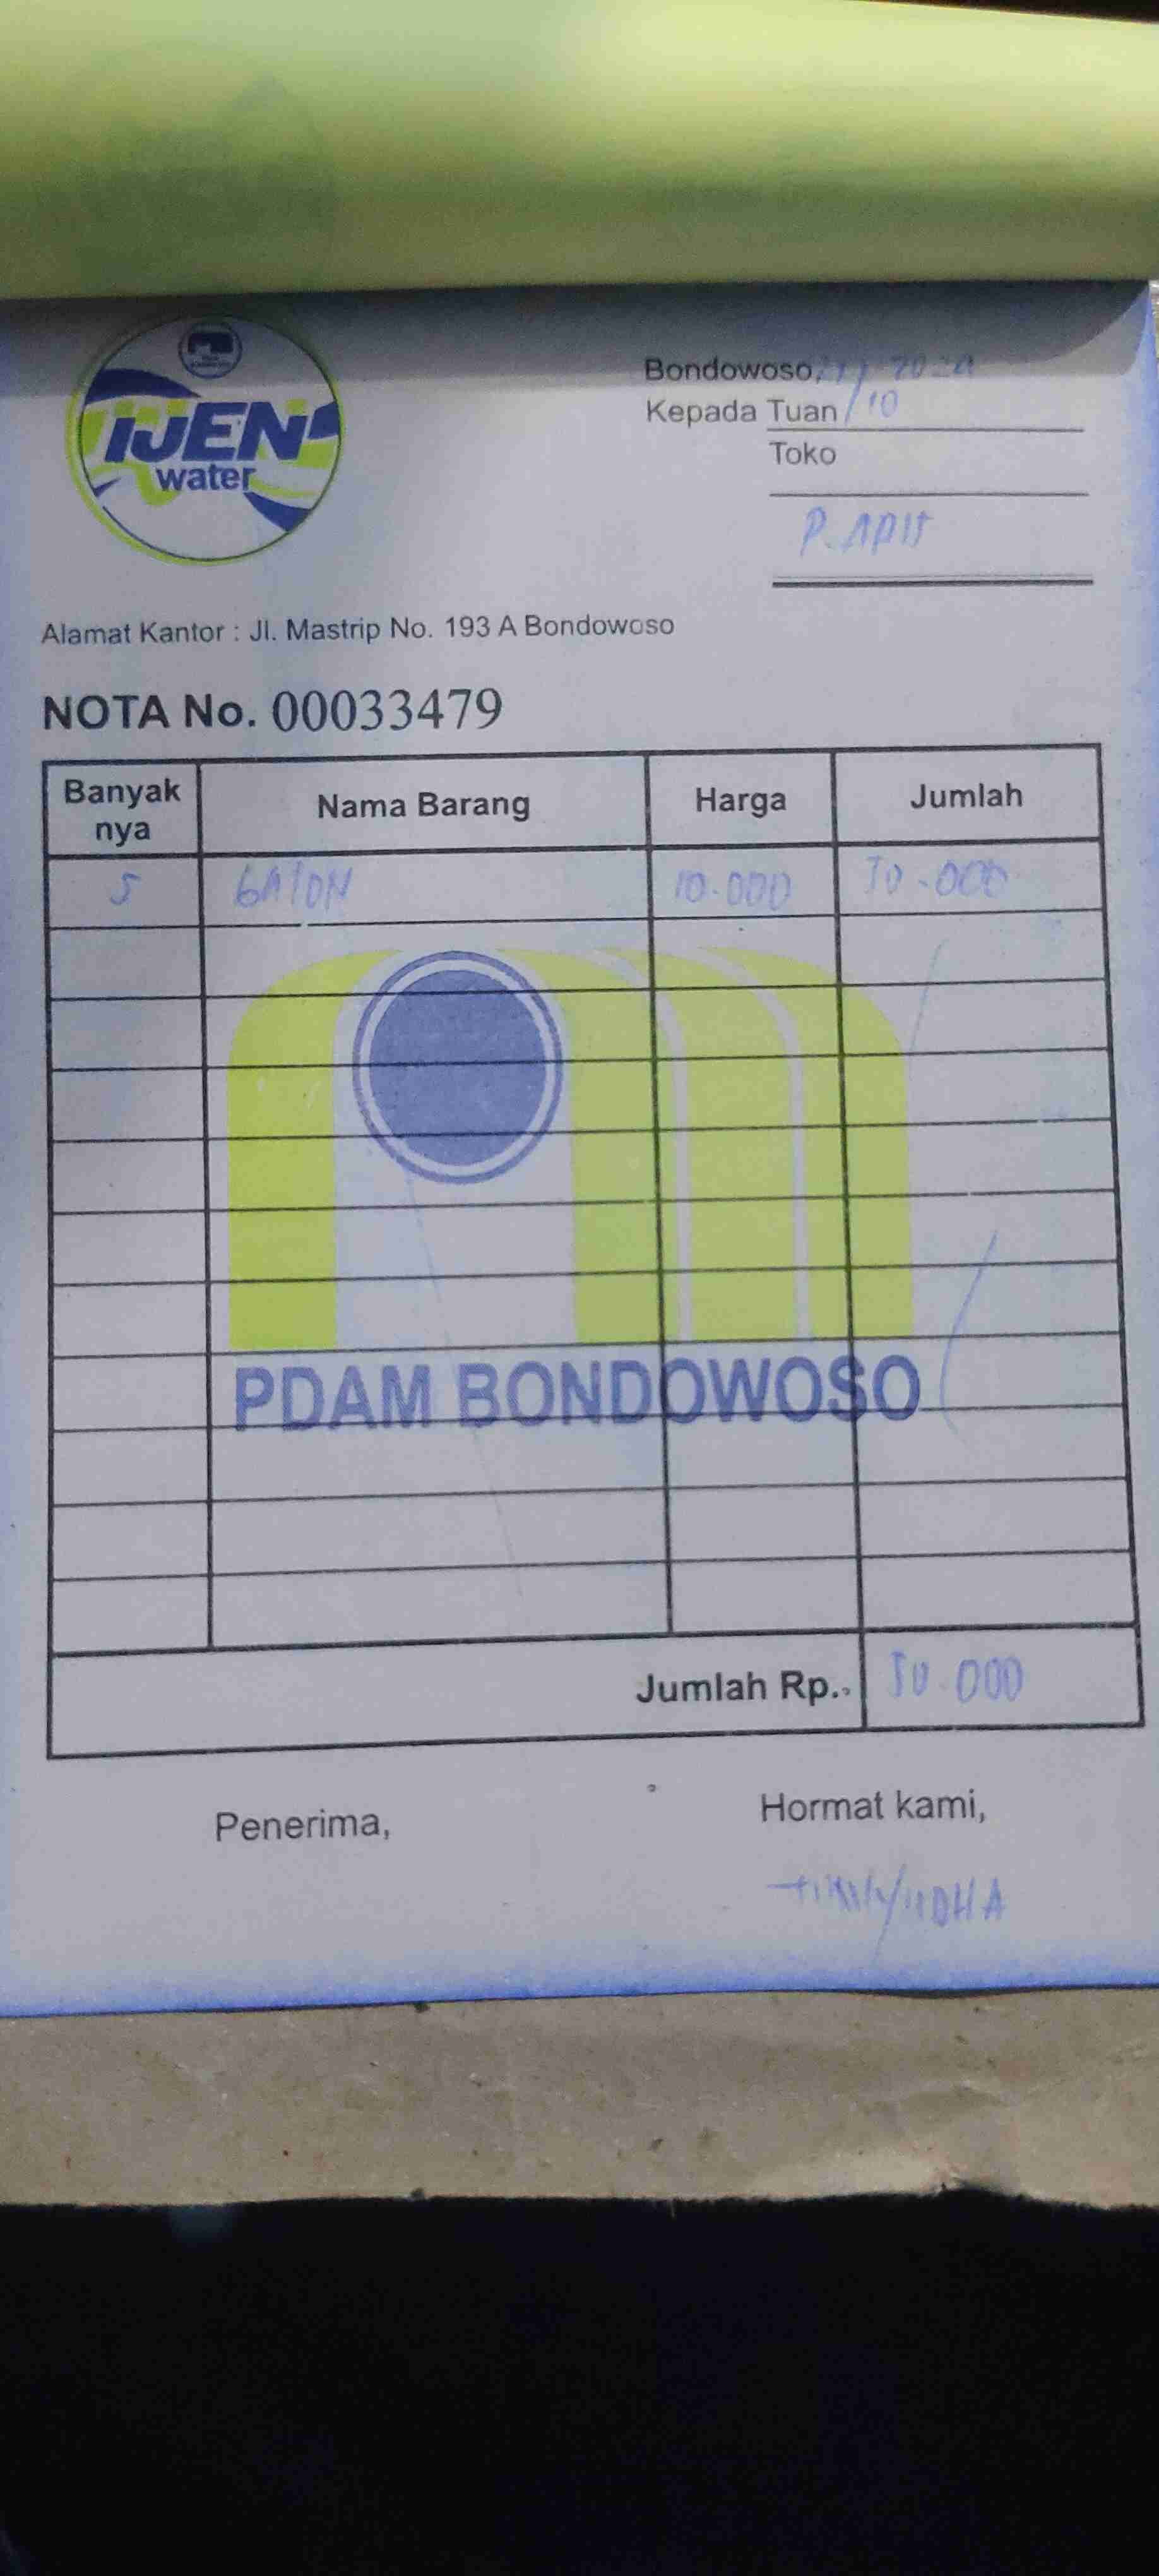 IJEN
water
Bondowoso,
Kepada Tuan /10
Toko
P. APIT
Alamat Kantor : Jl. Mastrip No. 193 A Bondowoso
NOTA No. 00033479
Banyak nya Nama Barang Harga Jumlah
5 GAlON 10.000 50.000
PDAM BONDOWOSO
Jumlah Rp.. 50.000
Penerima, Hormat kami,